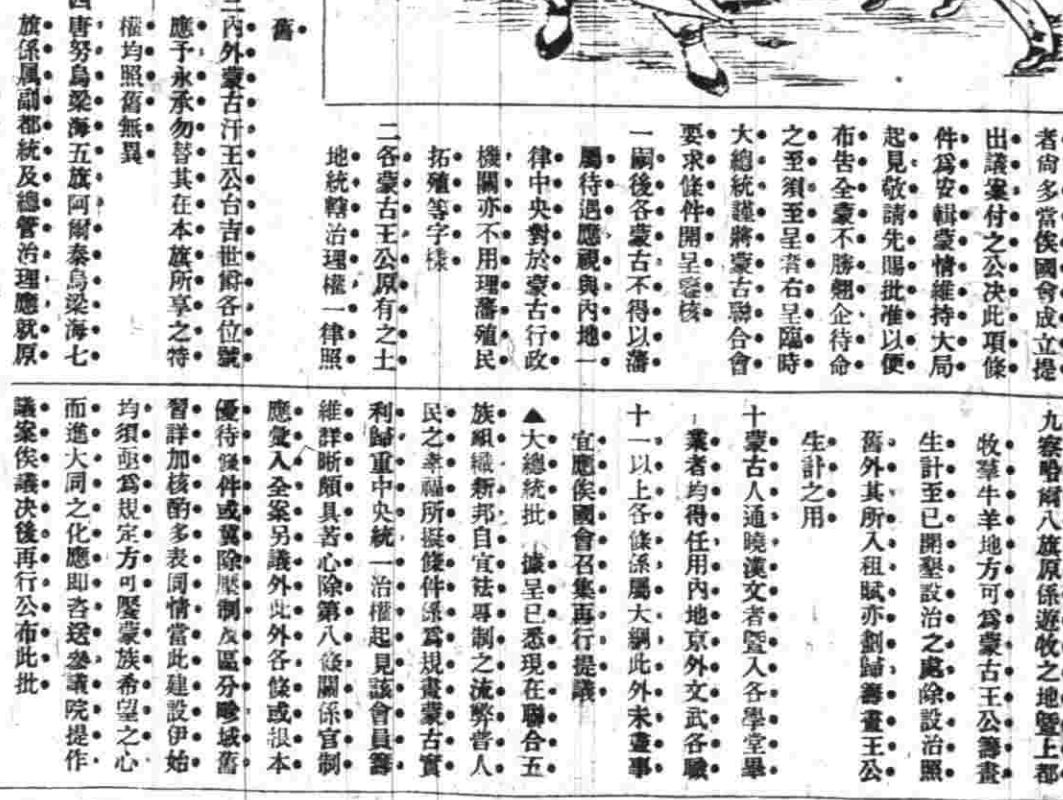 者尙多當俟國會成立提
出議案付之公决此項條
件爲安輯蒙情維持大局
起見敬請先賜批准以便
布告全蒙不勝翹企待命
之至須至呈者右呈臨時
大總統謹將蒙古聯合會
要求條件開呈鑒核
一嗣後各蒙古不得以藩
屬待遇應視與內地一
律中央對於蒙古行政
機關亦不用理藩殖民
拓殖等字樣
二各蒙古王公原有之土
地統轄治理權一律照
舊
三內外蒙古汗王公台吉世爵各位號
應予永承勿替其在本旗所享之特
權均照舊無異
四唐努烏梁海五旗阿爾泰烏梁海七
旗係屬副都統及總管治理應就原
九察哈爾八旗原係遊牧之地曁上都
牧羣牛羊地方可爲蒙古王公籌畫
生計至已開墾設治之處除設治照
舊外其所入租賦亦劃歸籌畫王公
生計之用
十蒙古人通曉漢文者曁入各學堂畢
業者均得任用內地京外文武各職
十一以上各條係屬大綱此外未盡事
宜應俟國會召集再行提議
▲大總統批 據呈已悉現在聯合五
族組織新邦自宜祛專制之流弊普人
民之幸福所擬條件係爲規畫蒙古實
利歸重中央統一治權起見該會員籌
維詳晰頗具著心除第八條關係官制
應彙入全案另議外此外各條或根本
優待條件或冀除壓制及區分畛域舊
習詳加核酌多表同情當此建設伊始
均須亟爲規定方可饜蒙族希望之心
而進大同之化應即咨送參議院提作
議案俟議决後再行公布此批